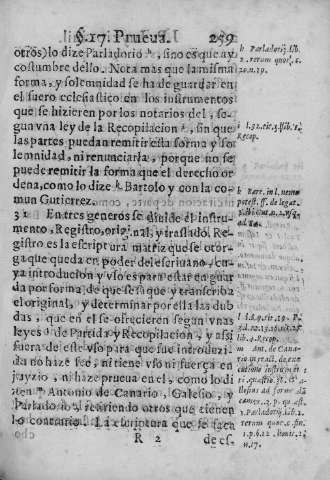 §. 17. Prueua. 259
otros) lo dize Parladorio h, sino es que ay
costumbre dello. Nota mas que la misma
forma, y solemnidad se ha de guardar en
el fuero eclesiastico en los instrumentos
que se hizieren por los notarios del, se-
gun vna ley de la Recopilacion i, sin que
las partes puedan remitir esta forma y so
lemnidad, ni renunciarla, porque no se
puede remitir la forma que el derecho or
dena, como lo dize k Bartolo y con la co-
mun Gutierrez.
31 En tres generos se diuide el instru-
mento, Registro, original, y traslado. Re-
gistro es la escriptura matriz que se otor-
ga que queda en poder del escriuano, cu-
ya introducion y vso es para estar en guar
da por forma de que se saque y transcriba
el original, y determinar por ella las dub
das, que en el se ofrecieren segun vnas
leyes l de Partida y Recopilacion, y assi
fuera de este vso para que fue introduzi-
da no haze fee, ni tiene vso ni fuerça en
juyzio, ni haze prueua en el, como lo di
zen m Antonio de Canario, Galesio, y
Parladorio, refiriendo otros que tienen
lo contrario. La escriptura que se saca
R 2 de es-
h Parladorij. lib.
2. rerum quot. c.
20. n. 19.
i l. 32. tit. 3. lib. 1.
Recop.
k Barr. in l. nemo
potest. ff. de legat.
l l. 8. 9. tit. 19. P.
lib. 4. Recop.
m Ant. de Cana-
rio in
cutione instrum
3. Parladorij. lib. 2.
rerum quot. c. fin.
1. p. §. 12. limit. 1.
n. 17.